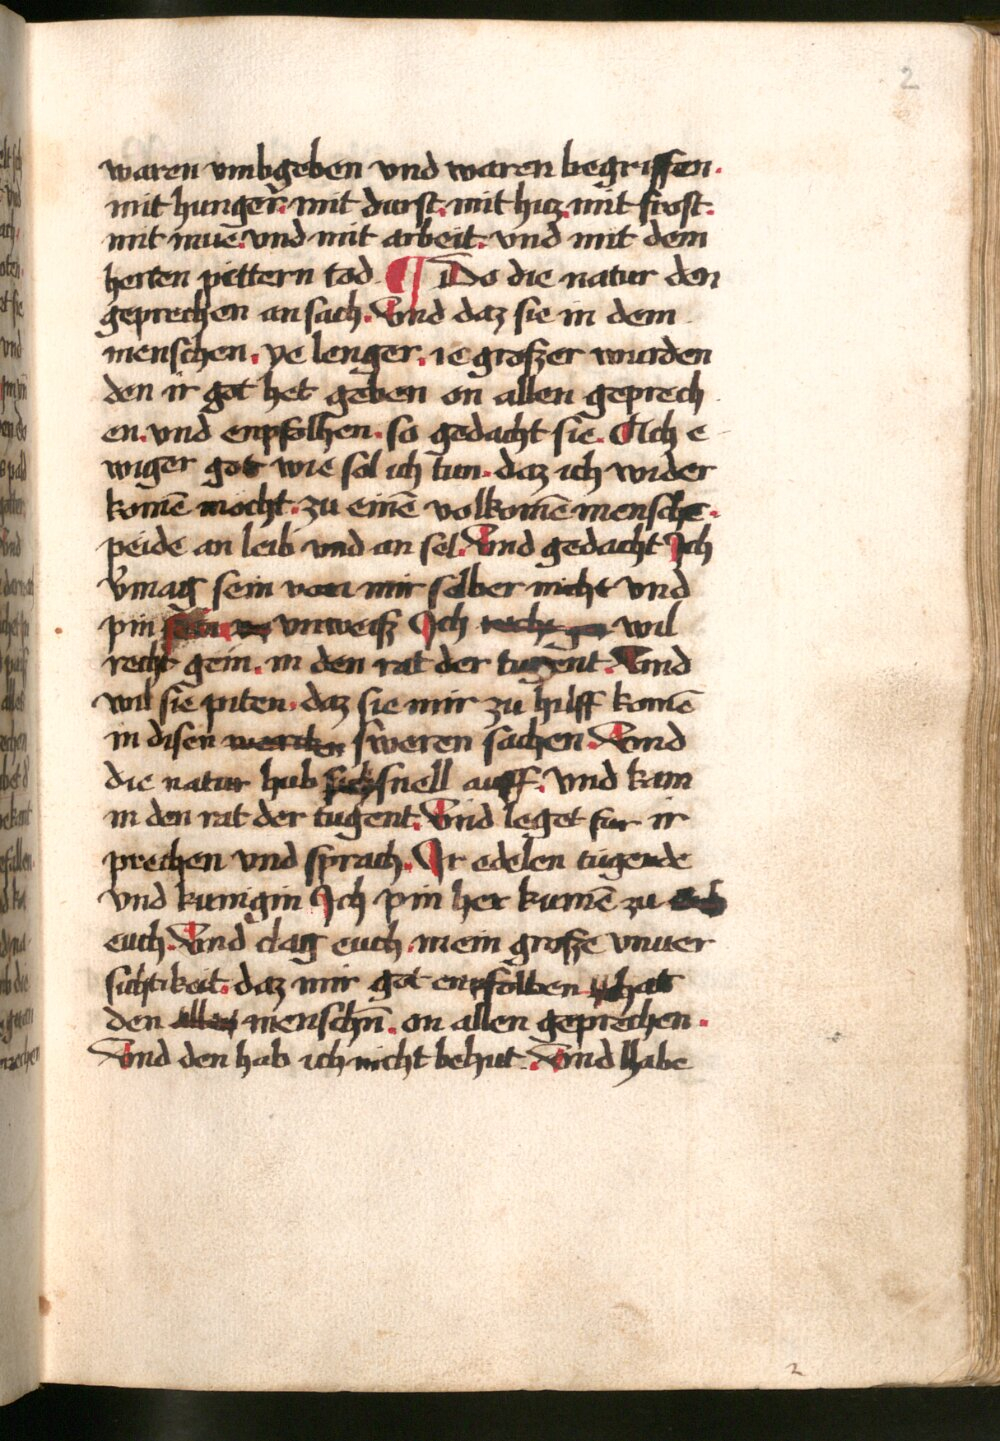 2
waren vmbgeben vnd waren begriffen.
mit hunger. mit durst. mit hicz. mit frost.
mit mue. vnd mit arbeit. vnd mit dem
herten pittern tod ¶ Do die natur den
geprechen an sach. Vnd daz sie in dem
menschen. ye lenger. ie groszer wurden
den ir got het geben on allen geprech
en. vnd enpfolhen. so gedacht sie. Ach e
wiger got wie sol ich tun. daz ich wider
komē mocht. zu einē volkomē mensche.
peide an leib vnd an sel. Vnd gedacht Ich
v̄mag sein von mir selber nicht vnd
pin vnweisz Ich wil
recht gein. in den rat der tugent. Vnd
wil sie piten. daz sie mir zu hilff komē
in disen sweren sachen. Vnd
die natur hub sich snell auff. vnd kam
in den rat der tugent. Vnd leget fur ir
prechen vnd sprach. Ir edelen tugende
vnd kunigin Ich pin her kumē zu
euch. Vnd clag euch. mein grosze vnuer
sichtikeit. daz mir got enpfolben hat
den menschn̄. on allen geprechen.
Vnd den hab ich nicht behut. Vnd habe
2